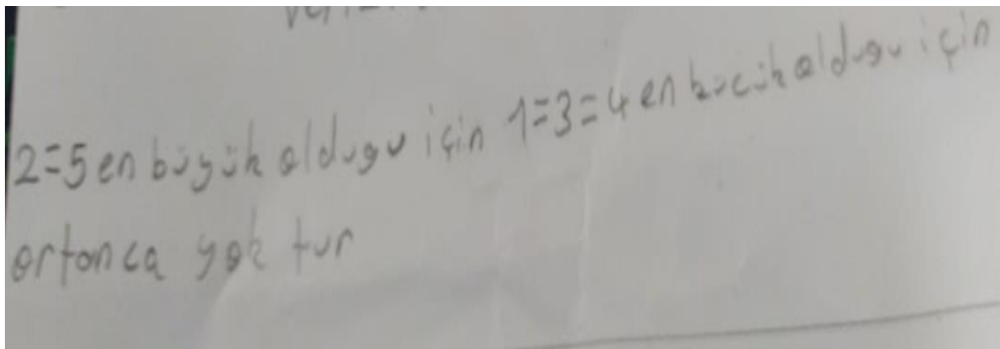 2=5 en büyük olduğu için 1=3=4 en kücük olduğu için
ortonca yok tur